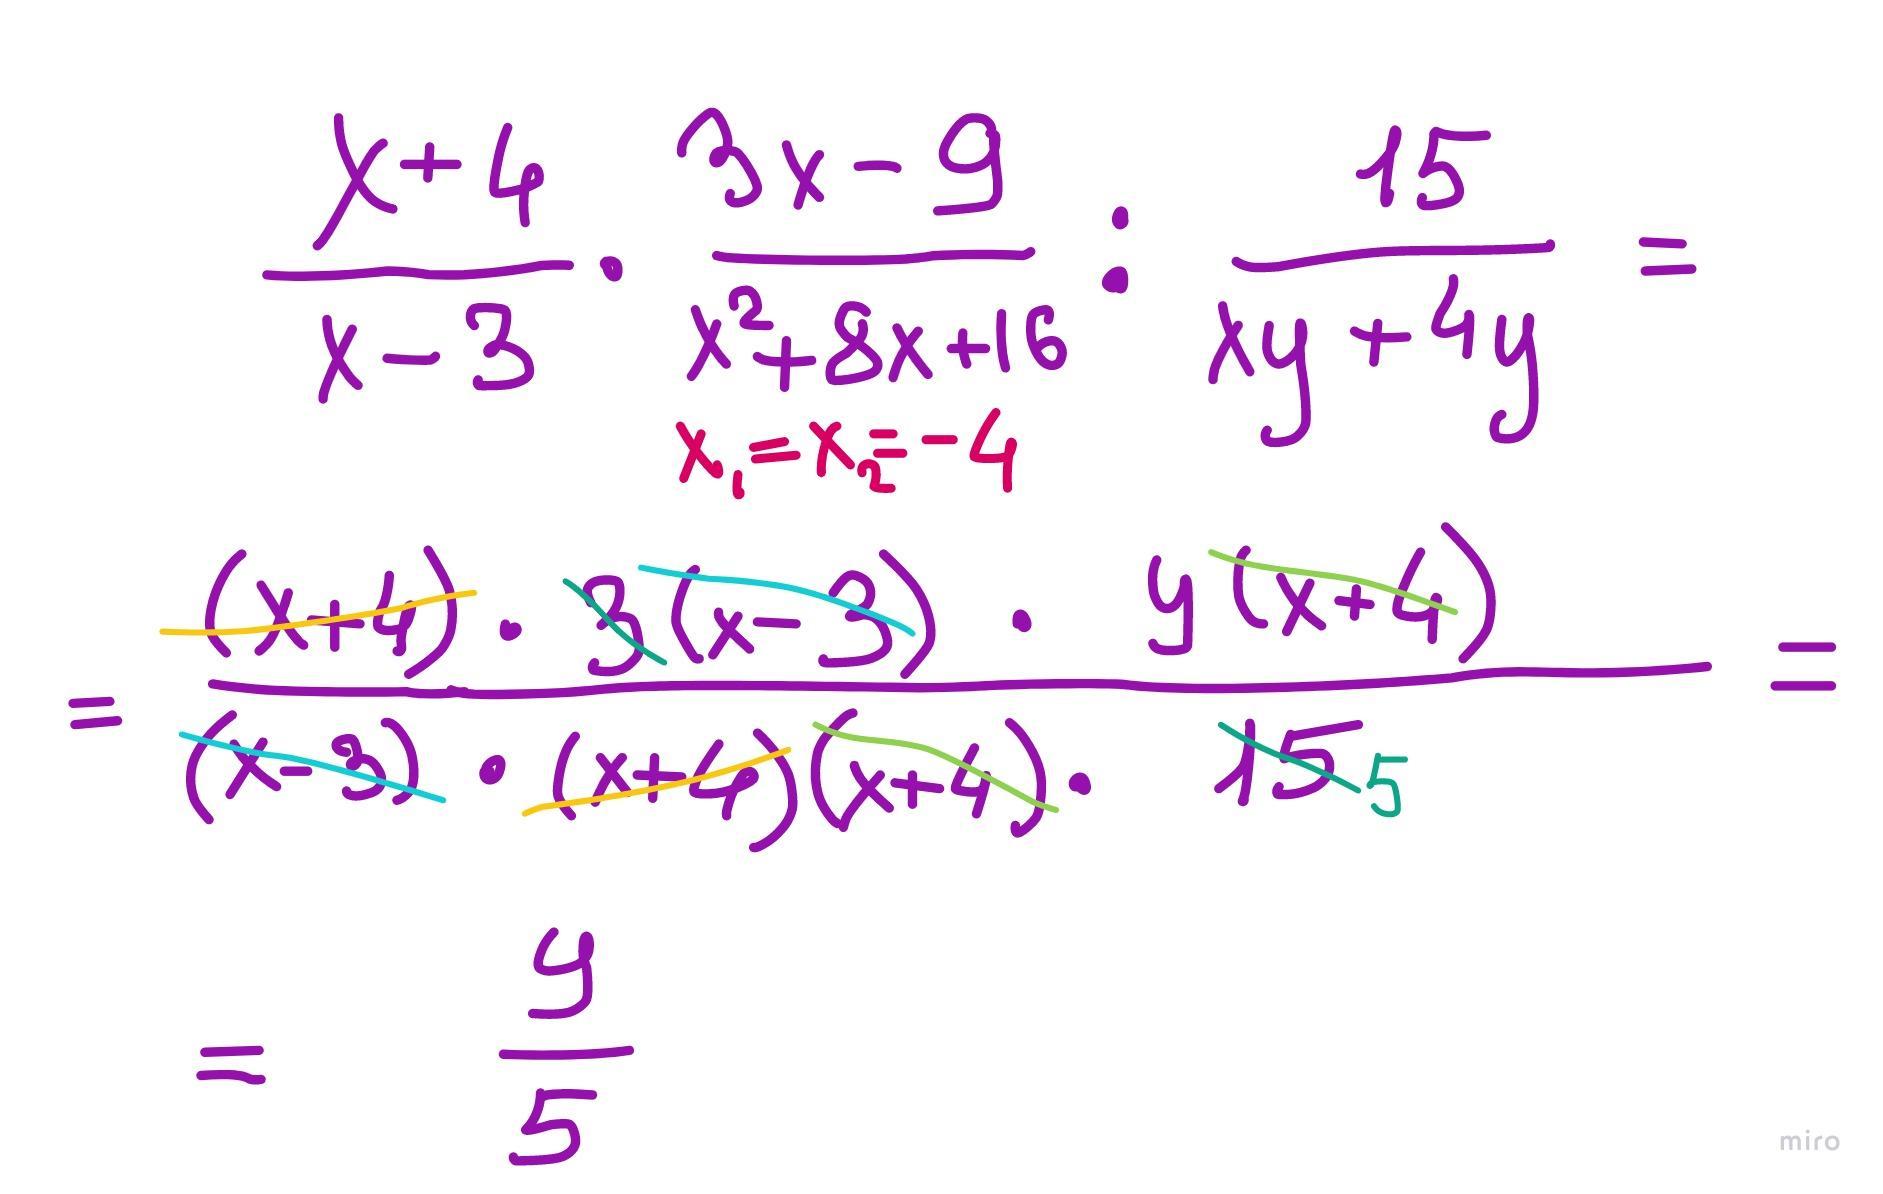 x+4/x-3 · 3x-9/x²+8x+16 : 15/xy+4y =
x₁=x₂=-4
= (x+4) · 3(x-3) · y(x+4)/(x-3) · (x+4)(x+4) · 15 5 =
= y/5
miro